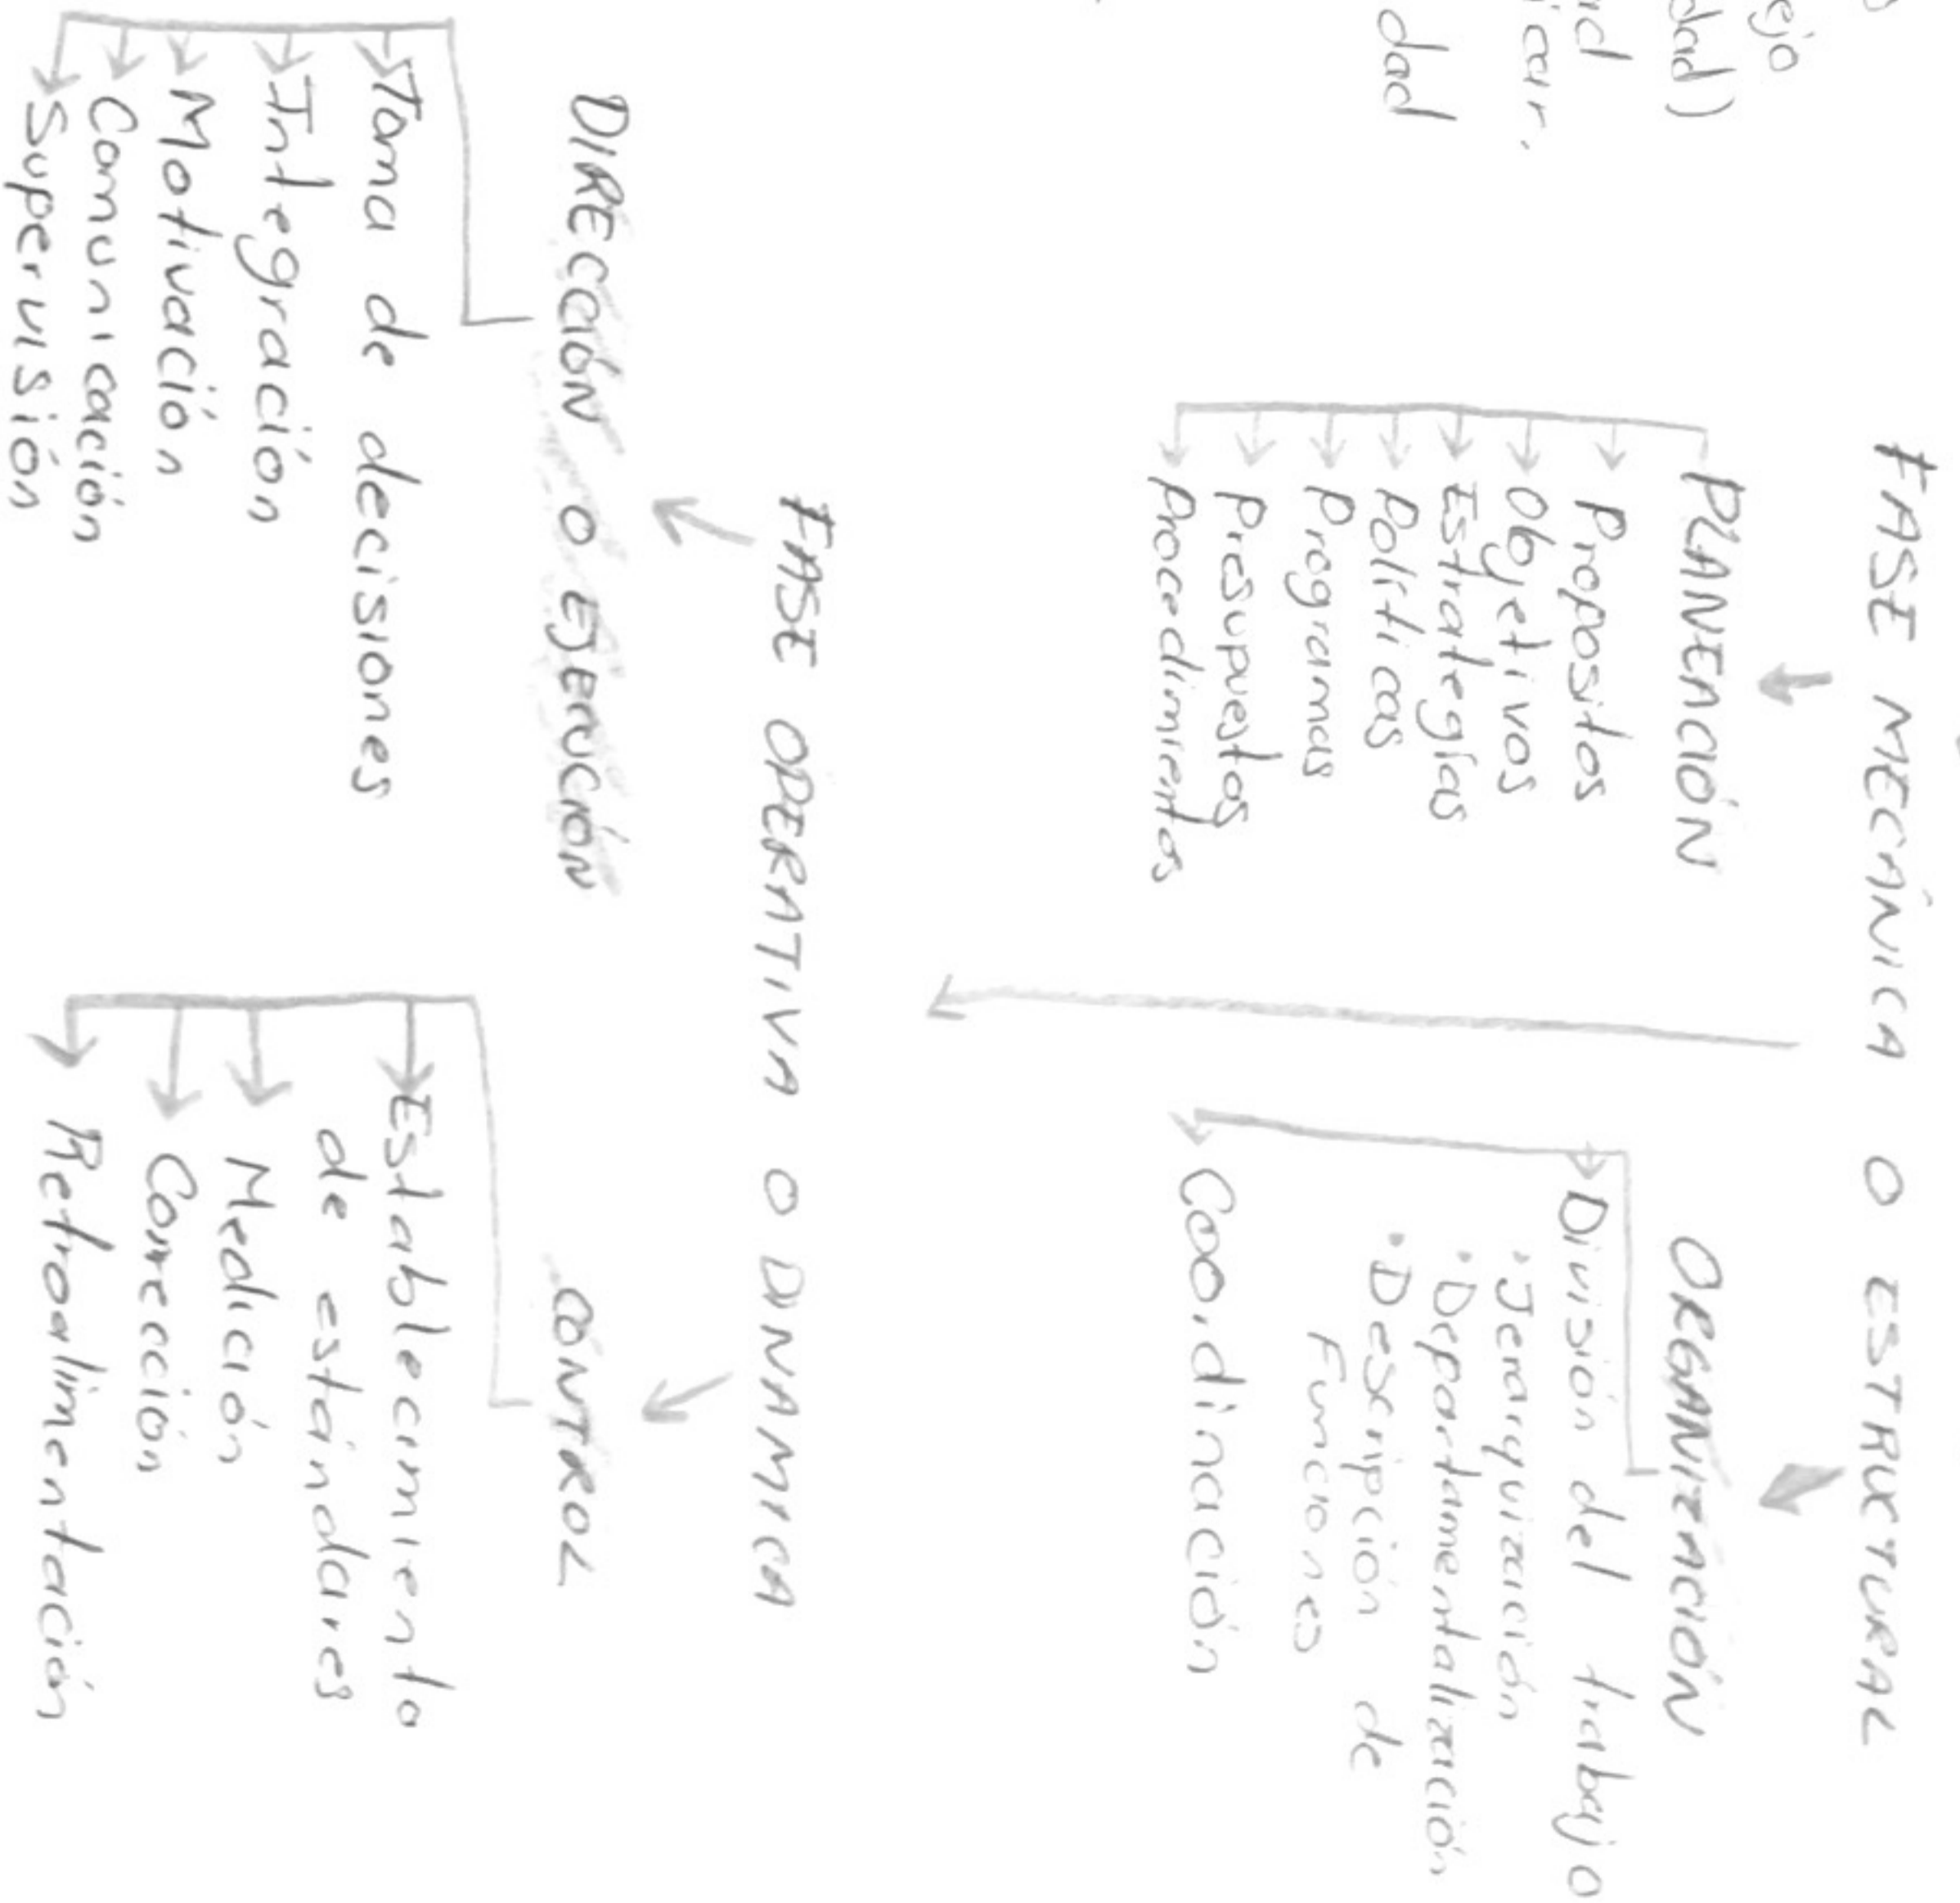 ejo
dad)
ud
icar.
dad
FASE MECÁNICA O ESTRUCTURAL
PLANEACIÓN
Propositos
Objetivos
Estrategias
Politicas
Programas
Presupuestos
Procedimientos
ORGANIZACIÓN
División del trabajo
· Jerarquización
· Departamentalización
· Descripción de
Funciones
Coordinación
FASE OPERATIVA O DINAMICA
DIRECCIÓN O EJECUCIÓN
Toma de decisiones
Integración
Motivación
Comunicación
Supervisión
CONTROL
Establecimiento
de estándares
Medición
Corrección
Retroalimentación